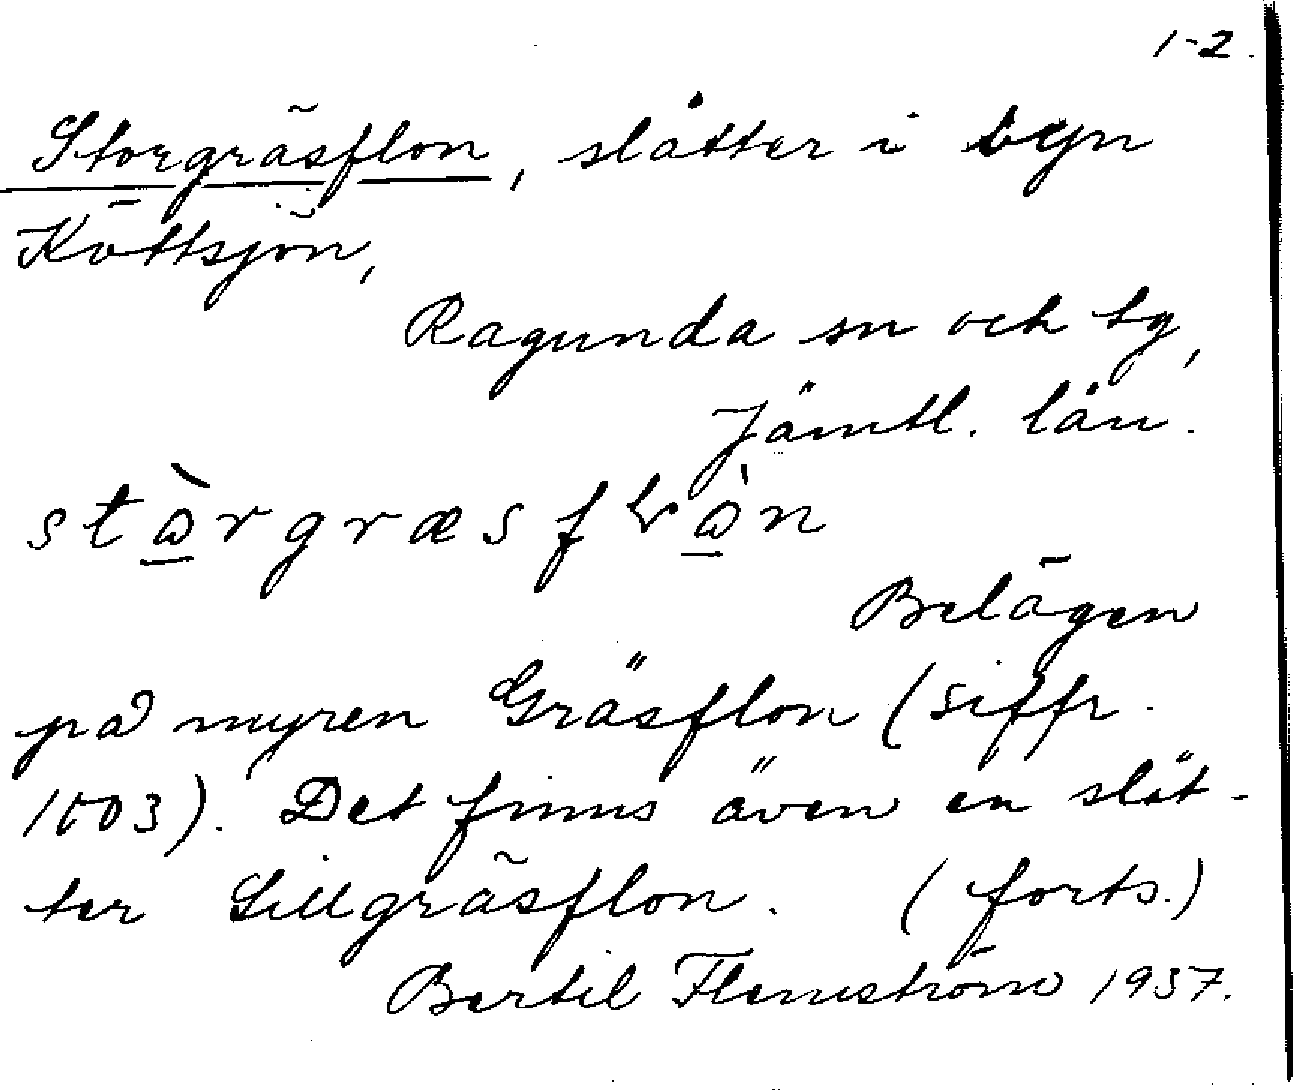 1-2.
Storgräsflon, slåtter i byn
Köttsjön,
Ragunda sn och tg,
Jämtl. län.
Belägen
på myren Gräsflon (siffr.
1003). Det finns även en slåt-
ter Lillgräsflon. (forts.)
Bertil Flemström 1957.